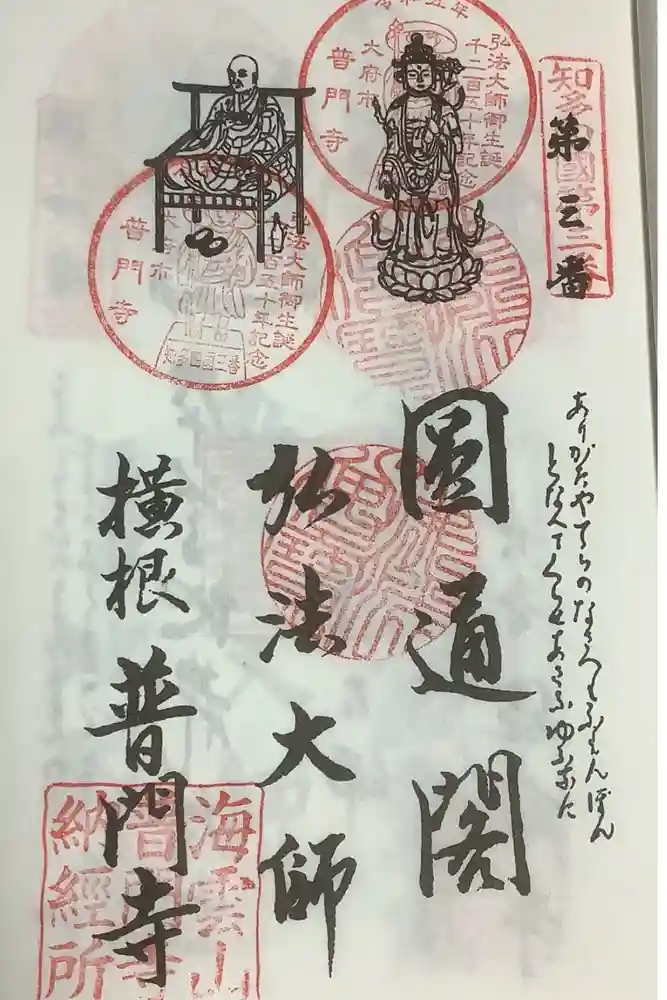 知多四國第三番
第三番
ありがたやてらのなさへもふもんぼん
となへてくらせあさなゆふなに
令和五年
弘法大師御生誕
千二百五十年記念
大府市
普門寺
圓通閣
弘法大師
弘法大師御生誕
百五十年記念
大府市
普門寺
知多四国三番
横根 普門寺
海雲山
普門寺
納經所